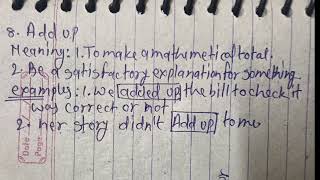 8. Add up
Meaning: 1. To make a mathemetical total.
2. Be a satisfactory explanation for something
examples: 1. we added up the bill to check it
was correct or not
2. her story didn't Add up to me
Date
Page